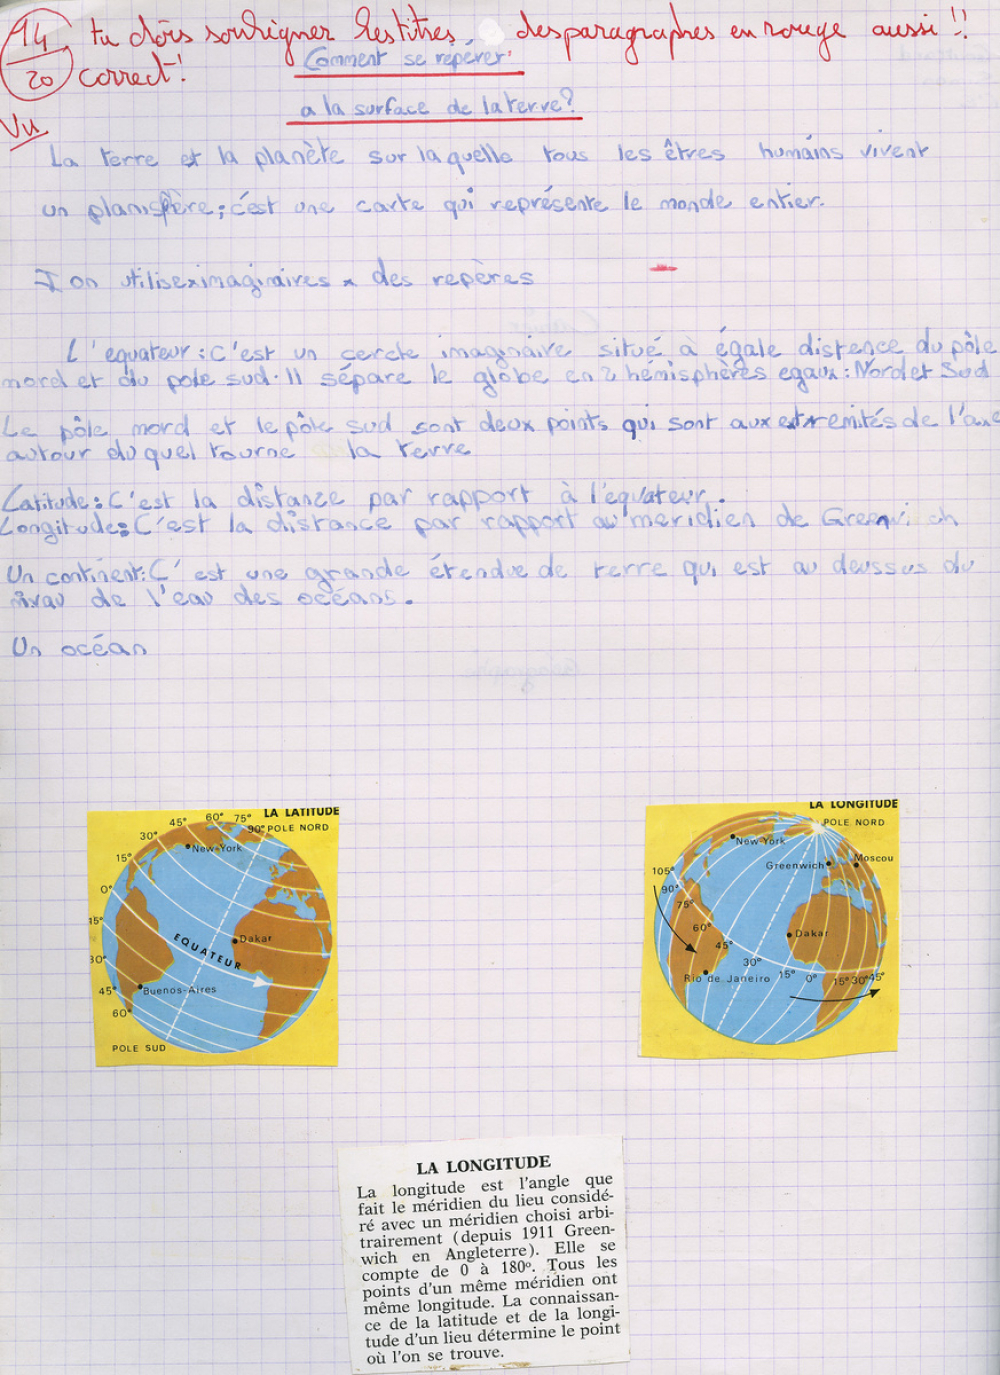 14 tu dois souligner les titres des paragraphes en rouge aussi !!
20 correct !
Vu
Comment se repérer
a la surface de la terre ?
La terre et la planète sur laquelle tous les êtres humains vivent
un planisfère ; c'est une carte qui représente le monde entier.
I on utilise imaginaires x des repères
L'equateur : C'est un cercle imaginaire situé à égale distence du pôle
nord et du pole sud. Il sépare le globe en 2 hémisphères egaux : Nord et Sud
Le pôle nord et le pôle sud sont deux points qui sont aux extremités de l'axe
autour du quel tourne la terre
Latitude : C'est la distance par rapport à l'equateur.
Longitude : C'est la distance par rapport au meridien de Greenwich
Un continent : C'est une grande étendue de terre qui est au dessus du
nivau de l'eau des océans.
Un océan
LA LATITUDE
45° 60° 75° 90° POLE NORD
30°
New-York
15°
0°
15°
EQUATEUR
Dakar
30°
45°
Buenos-Aires
60°
POLE SUD
LA LONGITUDE
POLE NORD
New-York
Greenwich
Moscou
105°
90°
75°
60°
Dakar
45°
30°
Rio de Janeiro
15° 0° 15° 30° 45°
LA LONGITUDE
La longitude est l'angle que
fait le méridien du lieu considé-
ré avec un méridien choisi arbi-
trairement (depuis 1911 Green-
wich en Angleterre). Elle se
compte de 0 à 180°. Tous les
points d'un même méridien ont
même longitude. La connaissan-
ce de la latitude et de la longi-
tude d'un lieu détermine le point
où l'on se trouve.